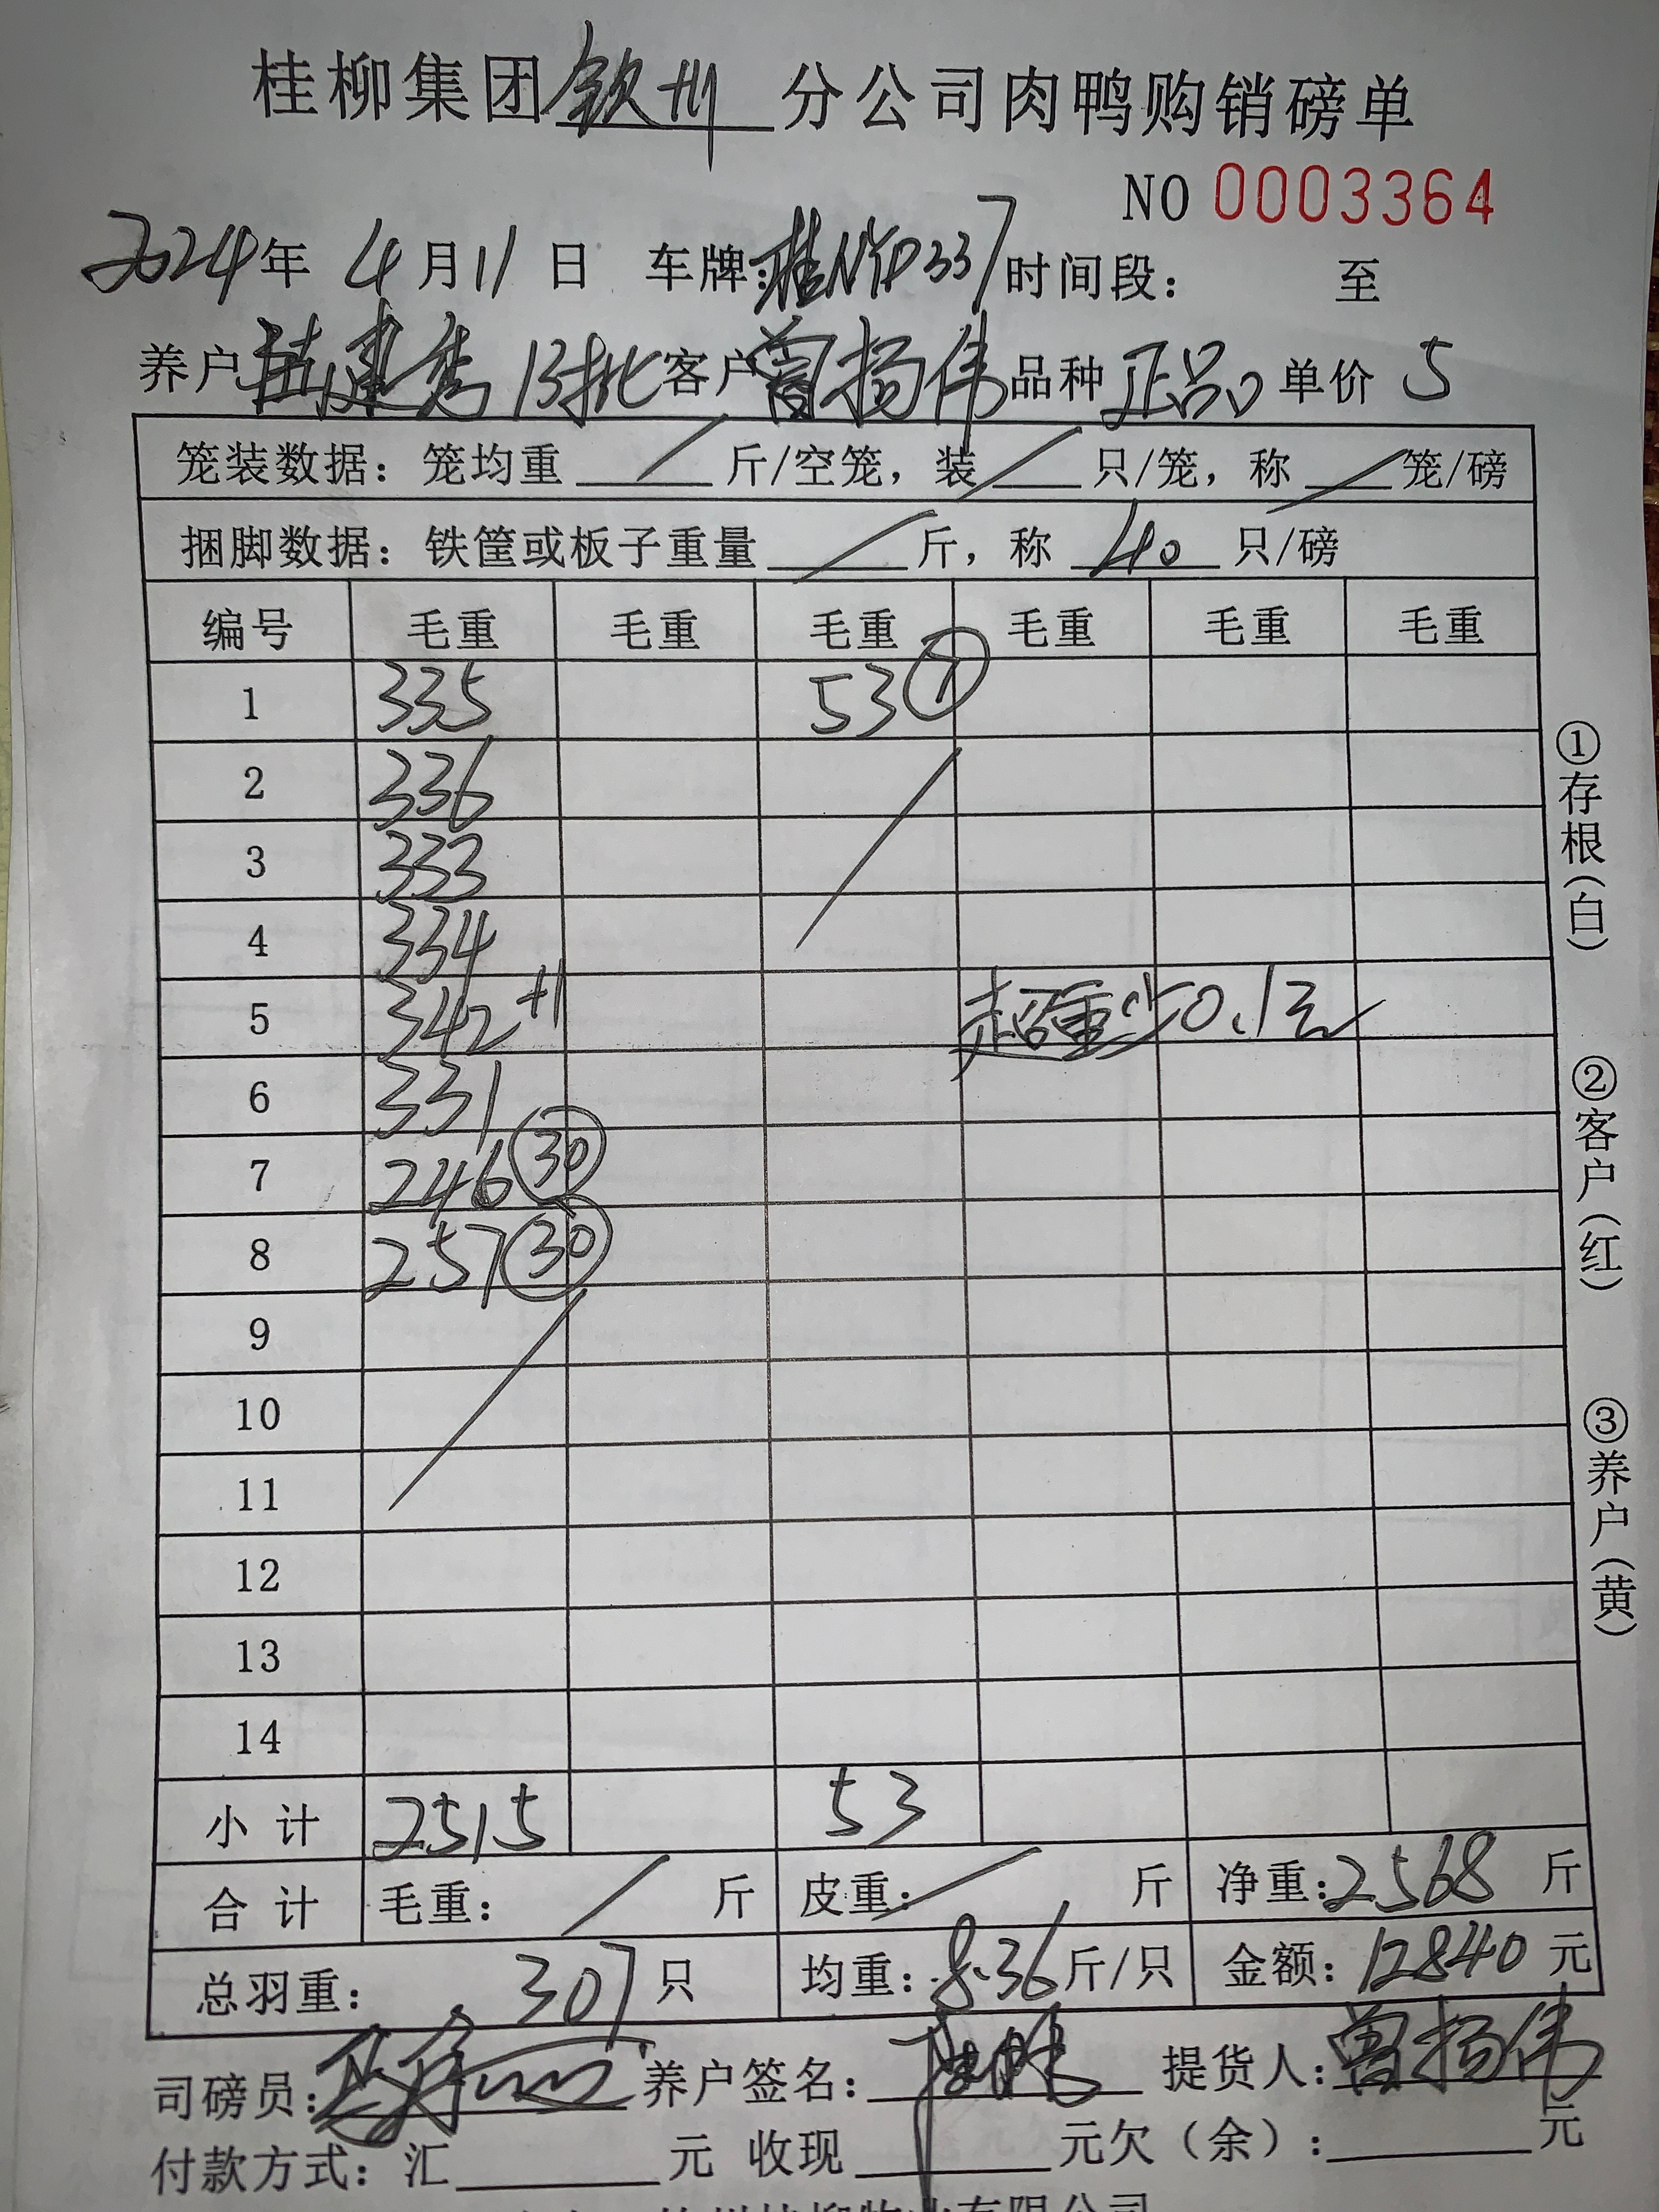 桂柳集团钦州分公司肉鸭购销磅单
NO 0003364
2024年 4月11日 车牌:桂NYD337 时间段: 至
养户 建秀 13批 客户 曾扬伟 品种 正品 单价 5
笼装数据: 笼均重 / 斤/空笼, 装 / 只/笼, 称 / 笼/磅
捆脚数据: 铁筐或板子重量 / 斤, 称 40 只/磅
编号 毛重 毛重 毛重 毛重 毛重 毛重
1 335 53 ⑦
2 336
3 333
4 334
5 342 +1 超重少0.1元
6 331
7 246 ㉚
8 257 ㉚
9
10
11
12
13
14
小计 2515 53
合计 毛重: / 斤 皮重: / 斤 净重: 2568 斤
总羽重: 307 只 均重: 8.36 斤/只 金额: 12840 元
司磅员: 养户签名: 提货人: 曾扬伟
付款方式: 汇 元 收现 元欠(余): 元
①存根(白)
②客户(红)
③养户(黄)